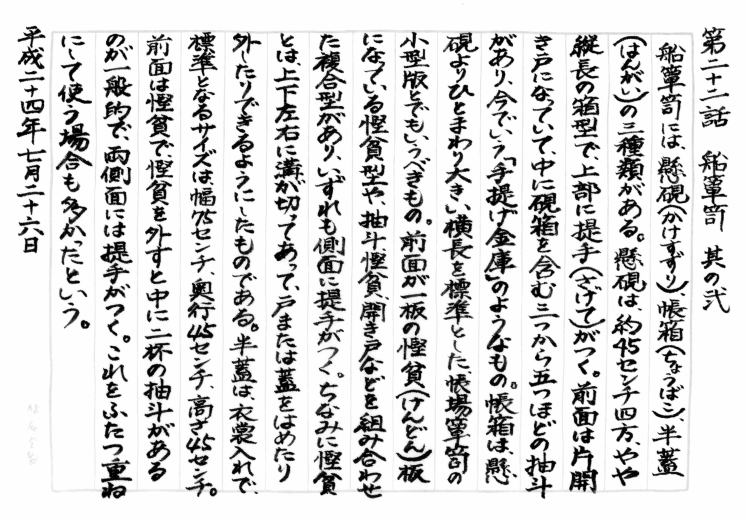 第二十二話　船箪笥　其の弐
船箪笥には、懸硯(かけすずり)、帳箱(ちょうばこ)、半蓋
(はんがい)の三種類がある。懸硯は、約45センチ四方、やや
縦長の箱型で、上部に提手(さげて)がつく。前面は片開
き戸になっていて、中に硯箱を含む三つから五つほどの抽斗
があり、今でいう「手提げ金庫」のようなもの。帳箱は、懸
硯よりひとまわり大きい、横長を標準とした、帳場箪笥の
小型版とでもいうべきもの。前面が一板の慳貪(けんどん)板
になっている慳貪型や、抽斗、慳貪、開き戸などを組み合わせ
た複合型があり、いずれも側面に提手がつく。ちなみに慳貪
とは、上下左右に溝が切ってあって、戸または蓋をはめたり
外したりできるようにしたものである。半蓋は、衣裳入れで、
標準となるサイズは幅75センチ、奥行45センチ、高さ45センチ。
前面は慳貪で、慳貪を外すと中に二杯の抽斗がある
のが一般的で、両側面には提手がつく。これをふたつ重ね
にして使う場合も多かったという。
平成二十四年七月二十六日